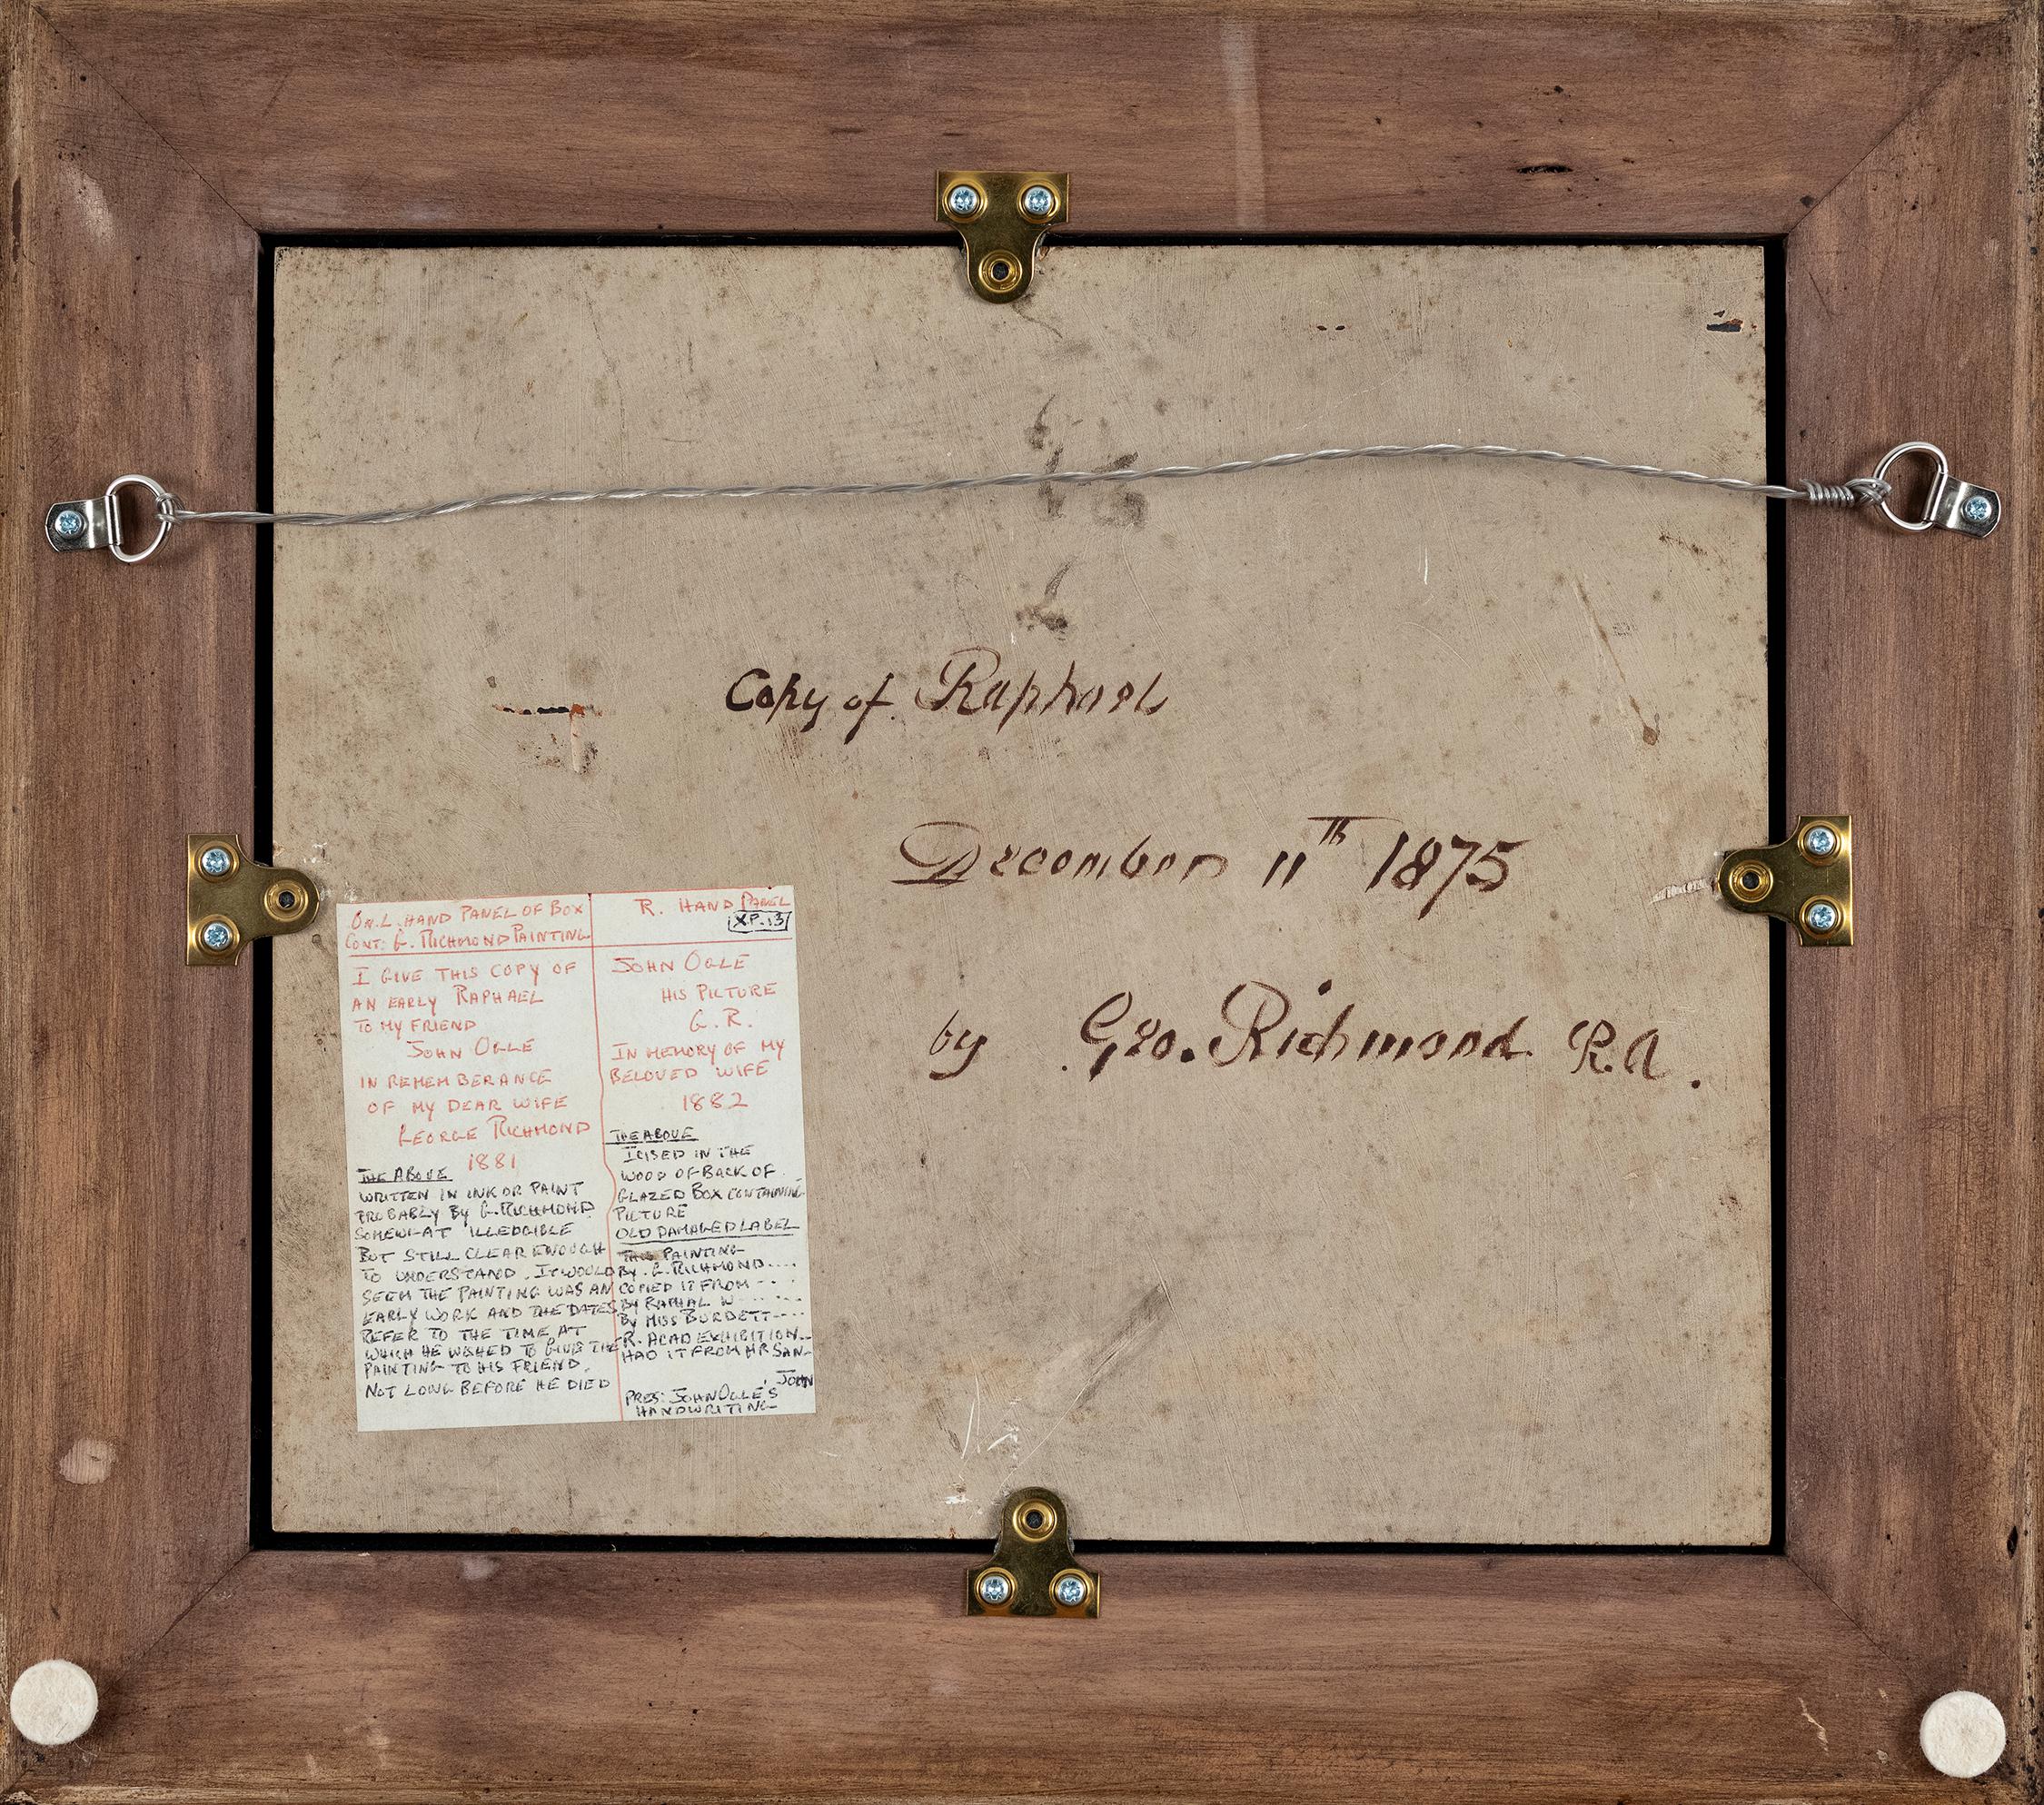 Copy of Raphael
December 11th 1875
by Geo. Richmond. R.A.
ON L. HAND PANEL OF BOX
CONT: G. RICHMOND PAINTING
I GIVE THIS COPY OF
AN EARLY RAPHAEL
TO MY FRIEND
JOHN OGLE
IN REMEMBERANCE
OF MY DEAR WIFE
GEORGE RICHMOND
1881
THE ABOVE
WRITTEN IN INK OR PAINT
PROBABLY BY G. RICHMOND
SOMEWHAT ILLEDGIBLE
BUT STILL CLEAR ENOUGH
TO UNDERSTAND. IT WOULD
SEEM THE PAINTING WAS AN
EARLY WORK AND THE DATES
REFER TO THE TIME AT
WHICH HE WISHED TO GIVE THE
PAINTING TO HIS FRIEND.
NOT LONG BEFORE HE DIED
R. HAND PANEL
XP.13
JOHN OGLE
HIS PICTURE
G. R.
IN MEMORY OF MY
BELOVED WIFE
1882
THE ABOVE
ICISED IN THE
WOOD OF BACK OF
GLAZED BOX CONTAINING
PICTURE
OLD DAMAGED LABEL
THIS PAINTING
BY G. RICHMOND....
COPIED IT FROM - - -
BY RAPHAL W - - - -
BY MISS BURDETT - - - -
R. ACAD EXHIBITION - -
HAD IT FROM MR SAN-
JOHN
PRES: JOHN OGLE'S
HANDWRITING